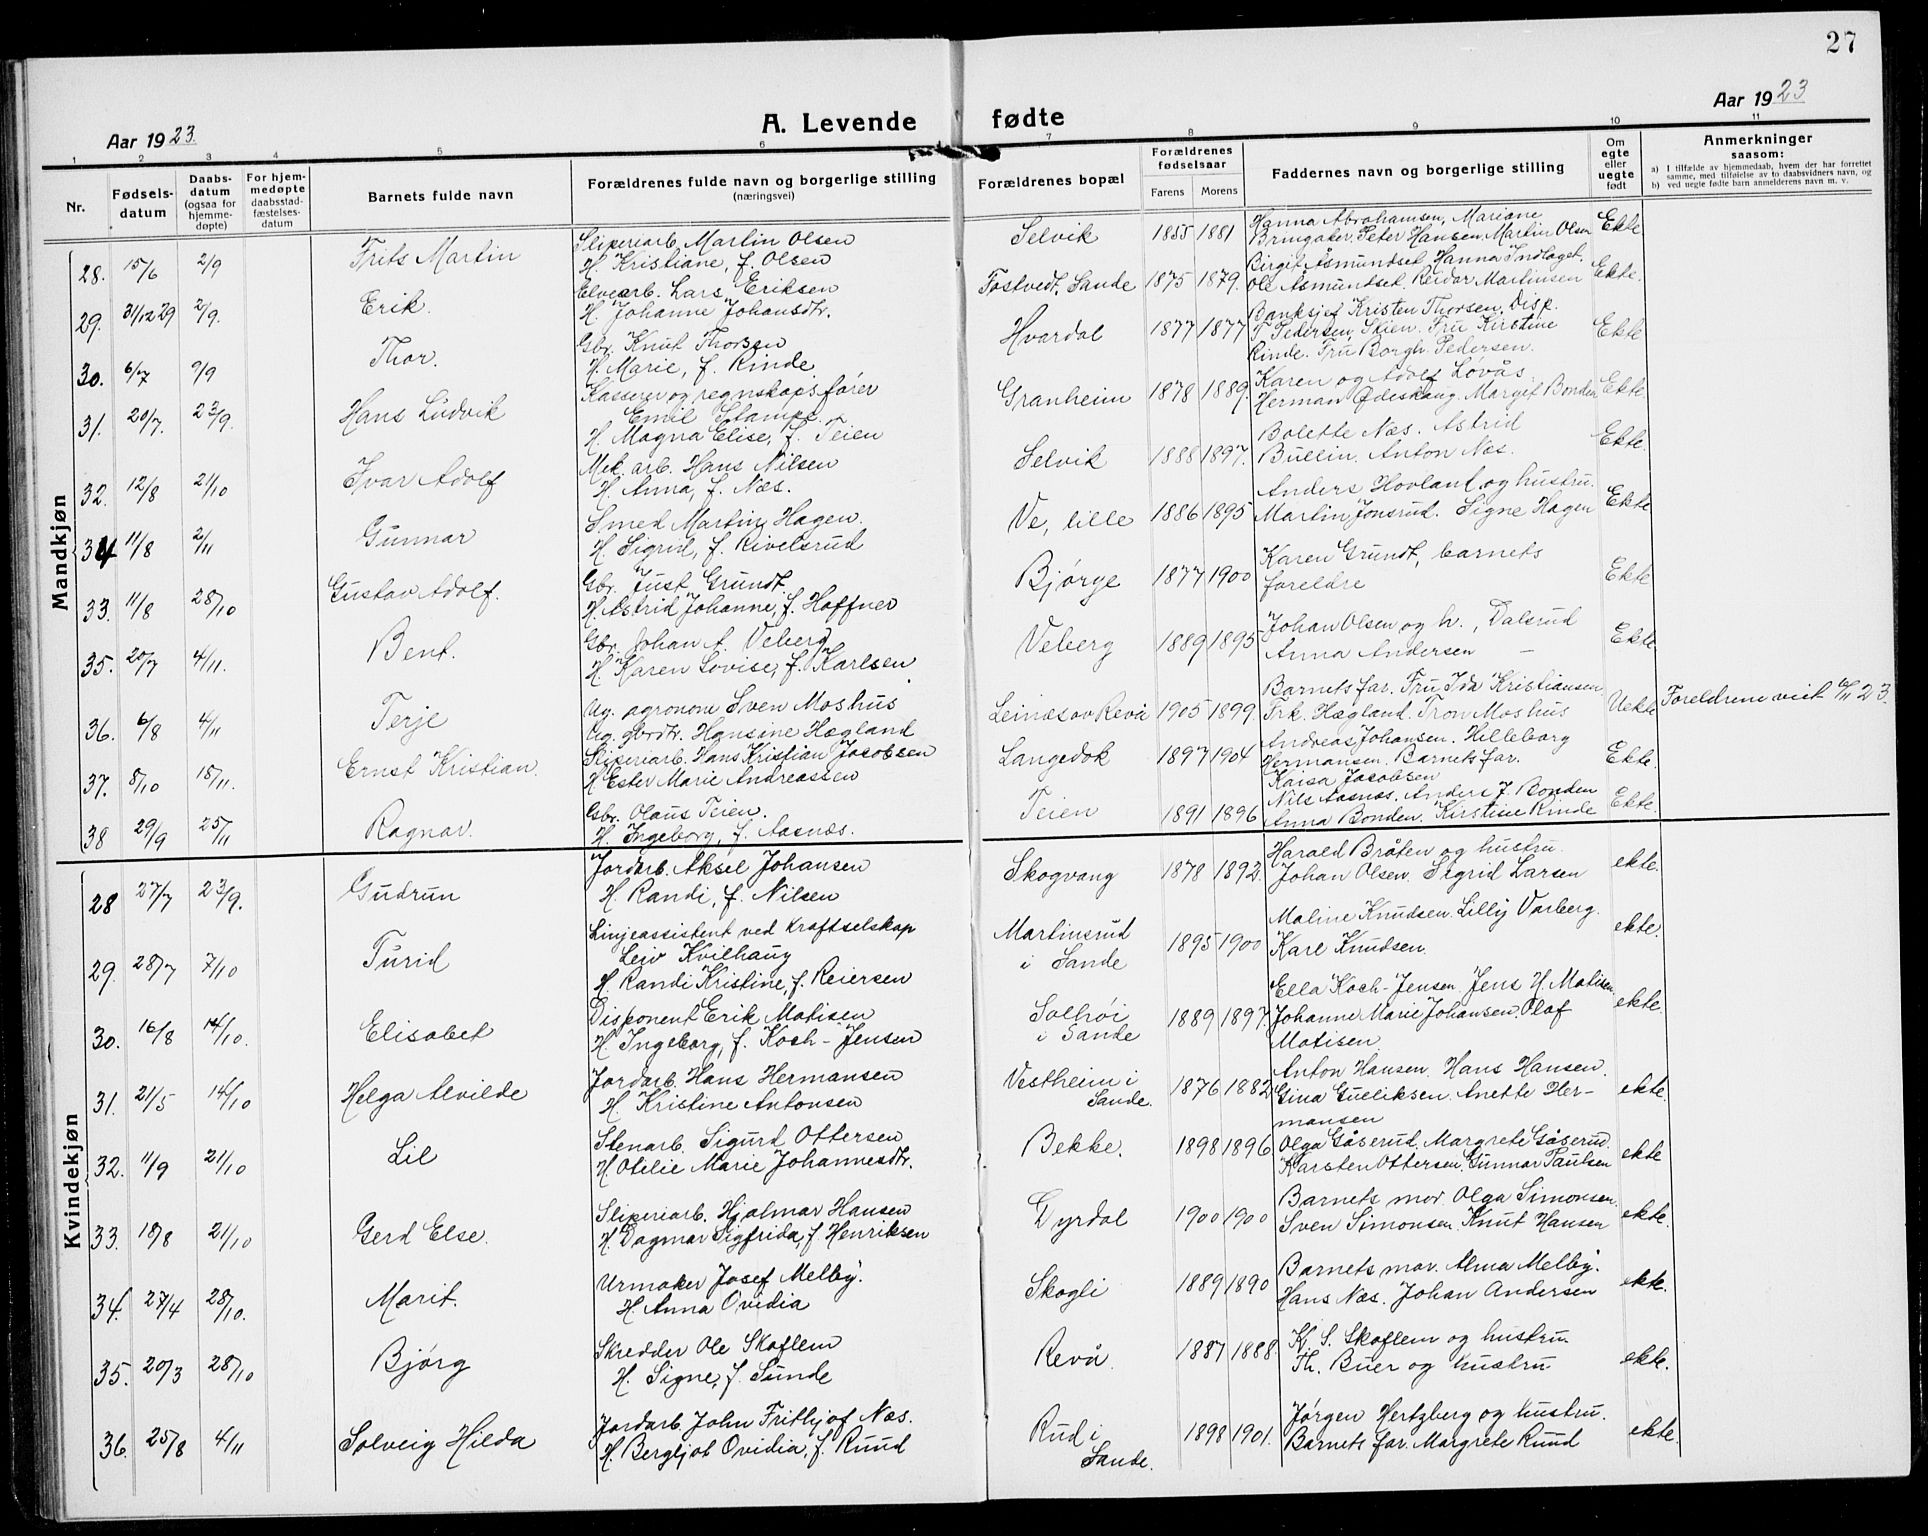 27
Aar 1923
A. Levende fødte
Aar 1923
1 2 3 4 5 6 7 8 9 10 11
Nr.
Fødsels-
datum
Daabs-
datum
(ogsaa for
hjemme-
døpte)
For hjem-
medøpte
daabsstad-
fæstelses-
datum
Barnets fulde navn
Forældrenes fulde navn og borgerlige stilling
(næringsvei)
Forældrenes bopæl
Forældrenes
fødselsaar
Farens Morens
Faddernes navn og borgerlige stilling
Om
egte
eller
uegte
født
Anmerkninger
saasom:
a) I tilfælde av hjemmedaab, hvem der har forrettet
samme, med tilføielse av to daabsvidners navn, og
b) ved uegte fødte barn anmelderens navn m. v.
Mandkjøn
28. 15/6 2/9 Frits Martin
Sliperiarb. Martin Olsen
H. Kristiane, f. Olsen
Selvik 1855 1881
Hanna Abrahamsen, Mariane
Bringaker. Peter Hansen. Martin Olsen
Ekte
29. 31/12 29 2/9. Erik.
Elvearb. Lars Eriksen
H. Johanne Johansdtr.
Tostvedt, Sande 1875 1879.
Birgit Åsmundset. Hanna Indlaget.
Ole Åsmundset. Reidar Martinsen
Ekte.
30. 6/7 9/9 Thor.
Gbr. Knut Thorsen
H. Marie, f. Rinde.
Hvardal 1877 1877
Banksjef Kristen Thorsen, Disp.
T. Pedersen, Skien. Fru Kirstine
Rinde. Fru Borgh. Pedersen.
Ekte
31. 20/7. 23/9. Hans Ludvik
Kasserer og regnskapsfører
Emil Stamps.
H. Magna Elise, f. Teien
Granheim 1878 1889.
Karen og Adolf Løvås.
Herman Ødeskaug. Margit Bonden
Ekte.
32. 12/8 21/10 Ivar Adolf
Mek. arb. Hans Nilsen
H. Anna, f. Næs.
Selvik 1888 1897.
Bolette Næs. Astrid
Bullin. Anton Næs.
Ekte.
34 11/8 2/11 Gunnar
Smed Martin Hagen.
H. Sigrid, f. Rivelsrud
Ve, lille 1886 1895
Anders Hovland og hustru.
Martin Jonsrud. Signe Hagen
Ekte
33. 11/8 28/10 Gustav Adolf.
Gbr. Just Grundt.
H. Astrid Johanne, f. Haffner
Bjørge 1877 1900
Karen Grundt, barnets
foreldre
Ekte
35. 20/7 4/11. Bent.
Gbr. Johan A. Veberg
H. Karen Lovise, f. Karlsen
Veberg 1889 1895
Johan Olsen og h., Dalsrud
Anna Andersen —
Ekte
36. 6/8 4/11 Terje
Ug. agronom Sven Moshus
Ug. gbrdtr. Hansine Hægland
Leinæs av Revå 1905 1899.
Barnets far. Fru Ida Kristiansen
Frk. Hægland. Tron Moshus
Uekte
Foreldrene viet 6/11 23.
37. 8/10 18/11. Ernst Kristian.
Sliperiarb. Hans Kristian Jacobsen
H. Ester Marie Andreassen
Langedok 1897 1904
Andreas Johansen. Hilleborg
Hermansen. Barnets far.
Kaisa Jacobsen
Ekte.
38 29/9 25/11 Ragnar.
Gbr. Olaus Teien.
H. Ingeborg, f. Aasnæs.
Teien 1891 1896
Nils Aasnæs. Anders J. Bonden
Anna Bonden. Kirstine Rinde
Ekte.
Kvindekjøn
28 27/7 23/9. Gudrun
Jordarb. Aksel Johansen
H. Randi, f. Nilsen
Skogvang 1878 1892.
Harald Bråten og hustru.
Johan Olsen. Sigrid Larsen
ekte.
29. 28/7 7/10 Turid
Linjeassistent ved kraftselskap
Leiv Kvilhaug
H. Randi Kristine, f. Reiersen
Martinsrud
i Sande
1895 1900
Maline Knudsen. Lilly Varberg.
Karl Knudsen.
ekte.
30. 16/8 14/10. Elisabet
Disponent Erik Matisen
H. Ingeborg, f. Koch-Jensen
Solhøi
i Sande
1889 1897.
Ella Koch-Jensen. Jens H. Matisen.
Johanne Marie Johansen. Olaf
Matisen.
ekte.
31. 21/5 14/10 Helga Alvilde
Jordarb. Hans Hermansen
H. Kristine Antonsen
Vestheim i
Sande.
1876 1882
Anton Hansen. Hans Hansen.
Gina Gulliksen. Anette Her-
mansen
ekte.
32. 11/9 21/10 Lil
Stenarb. Sigurd Ottersen
H. Otilie Marie Johannesdtr.
Bekke. 1898 1896
Olga Gåserud. Margrete Gåserud.
Karsten Ottersen. Gunnar Paulsen
ekte
33. 18/8 21/10 Gerd Else.
Sliperiarb. Hjalmar Hansen
H. Dagmar Sigfrida, f Henriksen
Dyrdal 1900 1900
Barnets mor. Olga Simonsen.
Sven Simonsen. Knut Hansen
ekte.
34. 27/4 28/10. Marit.
Urmaker Josef Melby.
H. Anna Ovidia
Skogli 1889 1890
Barnets mor. Alma Melby.
Hans Næs. Johan Andersen
ekte.
35. 20/3 28/10 Bjørg
Skredder Ole Skaflem
H. Signe, f. Sunde
Revå. 1887 1888.
K. S. Skaflem og hustru.
Th. Buer og hustru
ekte.
36. 25/8 4/11 Solveig Hilda
Jordarb. John Fritjof Næs.
H. Bergljot Ovidia, f. Ruud
Rud i
Sande.
1898 1901.
Jørgen Hertzberg og hustru.
Barnets far. Margrete Ruud
ekte.